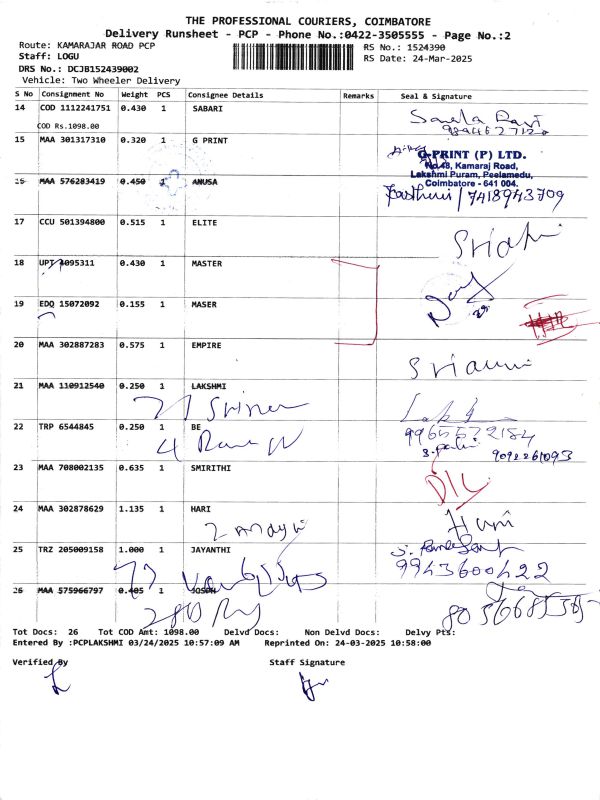 THE PROFESSIONAL COURIERS, COIMBATORE
Delivery Runsheet - PCP - Phone No.:0422-3505555 - Page No.:2
Route: KAMARAJAR ROAD PCP
RS No.: 1524390
Staff: LOGU
RS Date: 24-Mar-2025
DRS No.: DCJB152439002
Vehicle: Two Wheeler Delivery
S No Consignment No Weight PCS Consignee Details Remarks Seal & Signature
14 COD 1112241751 0.430 1 SABARI
COD Rs.1098.00
15 MAA 301317310 0.320 1 G PRINT
G-PRINT (P) LTD.
No.48, Kamaraj Road,
Lakshmi Puram, Peelamedu,
Coimbatore - 641 004.
16 MAA 576283419 0.450 1 ANUSA
7418943709
17 CCU 501394800 0.515 1 ELITE
18 UPT 1095311 0.430 1 MASTER
19 EDQ 15072092 0.155 1 MASER
20 MAA 302887283 0.575 1 EMPIRE
21 MAA 110912540 0.250 1 LAKSHMI
22 TRP 6544845 0.250 1 BE
9965572184
9092261093
23 MAA 708002135 0.635 1 SMIRITHI
D/L
24 MAA 302878629 1.135 1 HARI
Hari
25 TRZ 205009158 1.000 1 JAYANTHI
9943600422
26 MAA 575966797 0.405 1 JOSPH
Tot Docs: 26 Tot COD Amt: 1098.00 Delvd Docs: Non Delvd Docs: Delvy Pts:
Entered By :PCPLAKSHMI 03/24/2025 10:57:09 AM Reprinted On: 24-03-2025 10:58:00
Verified By Staff Signature